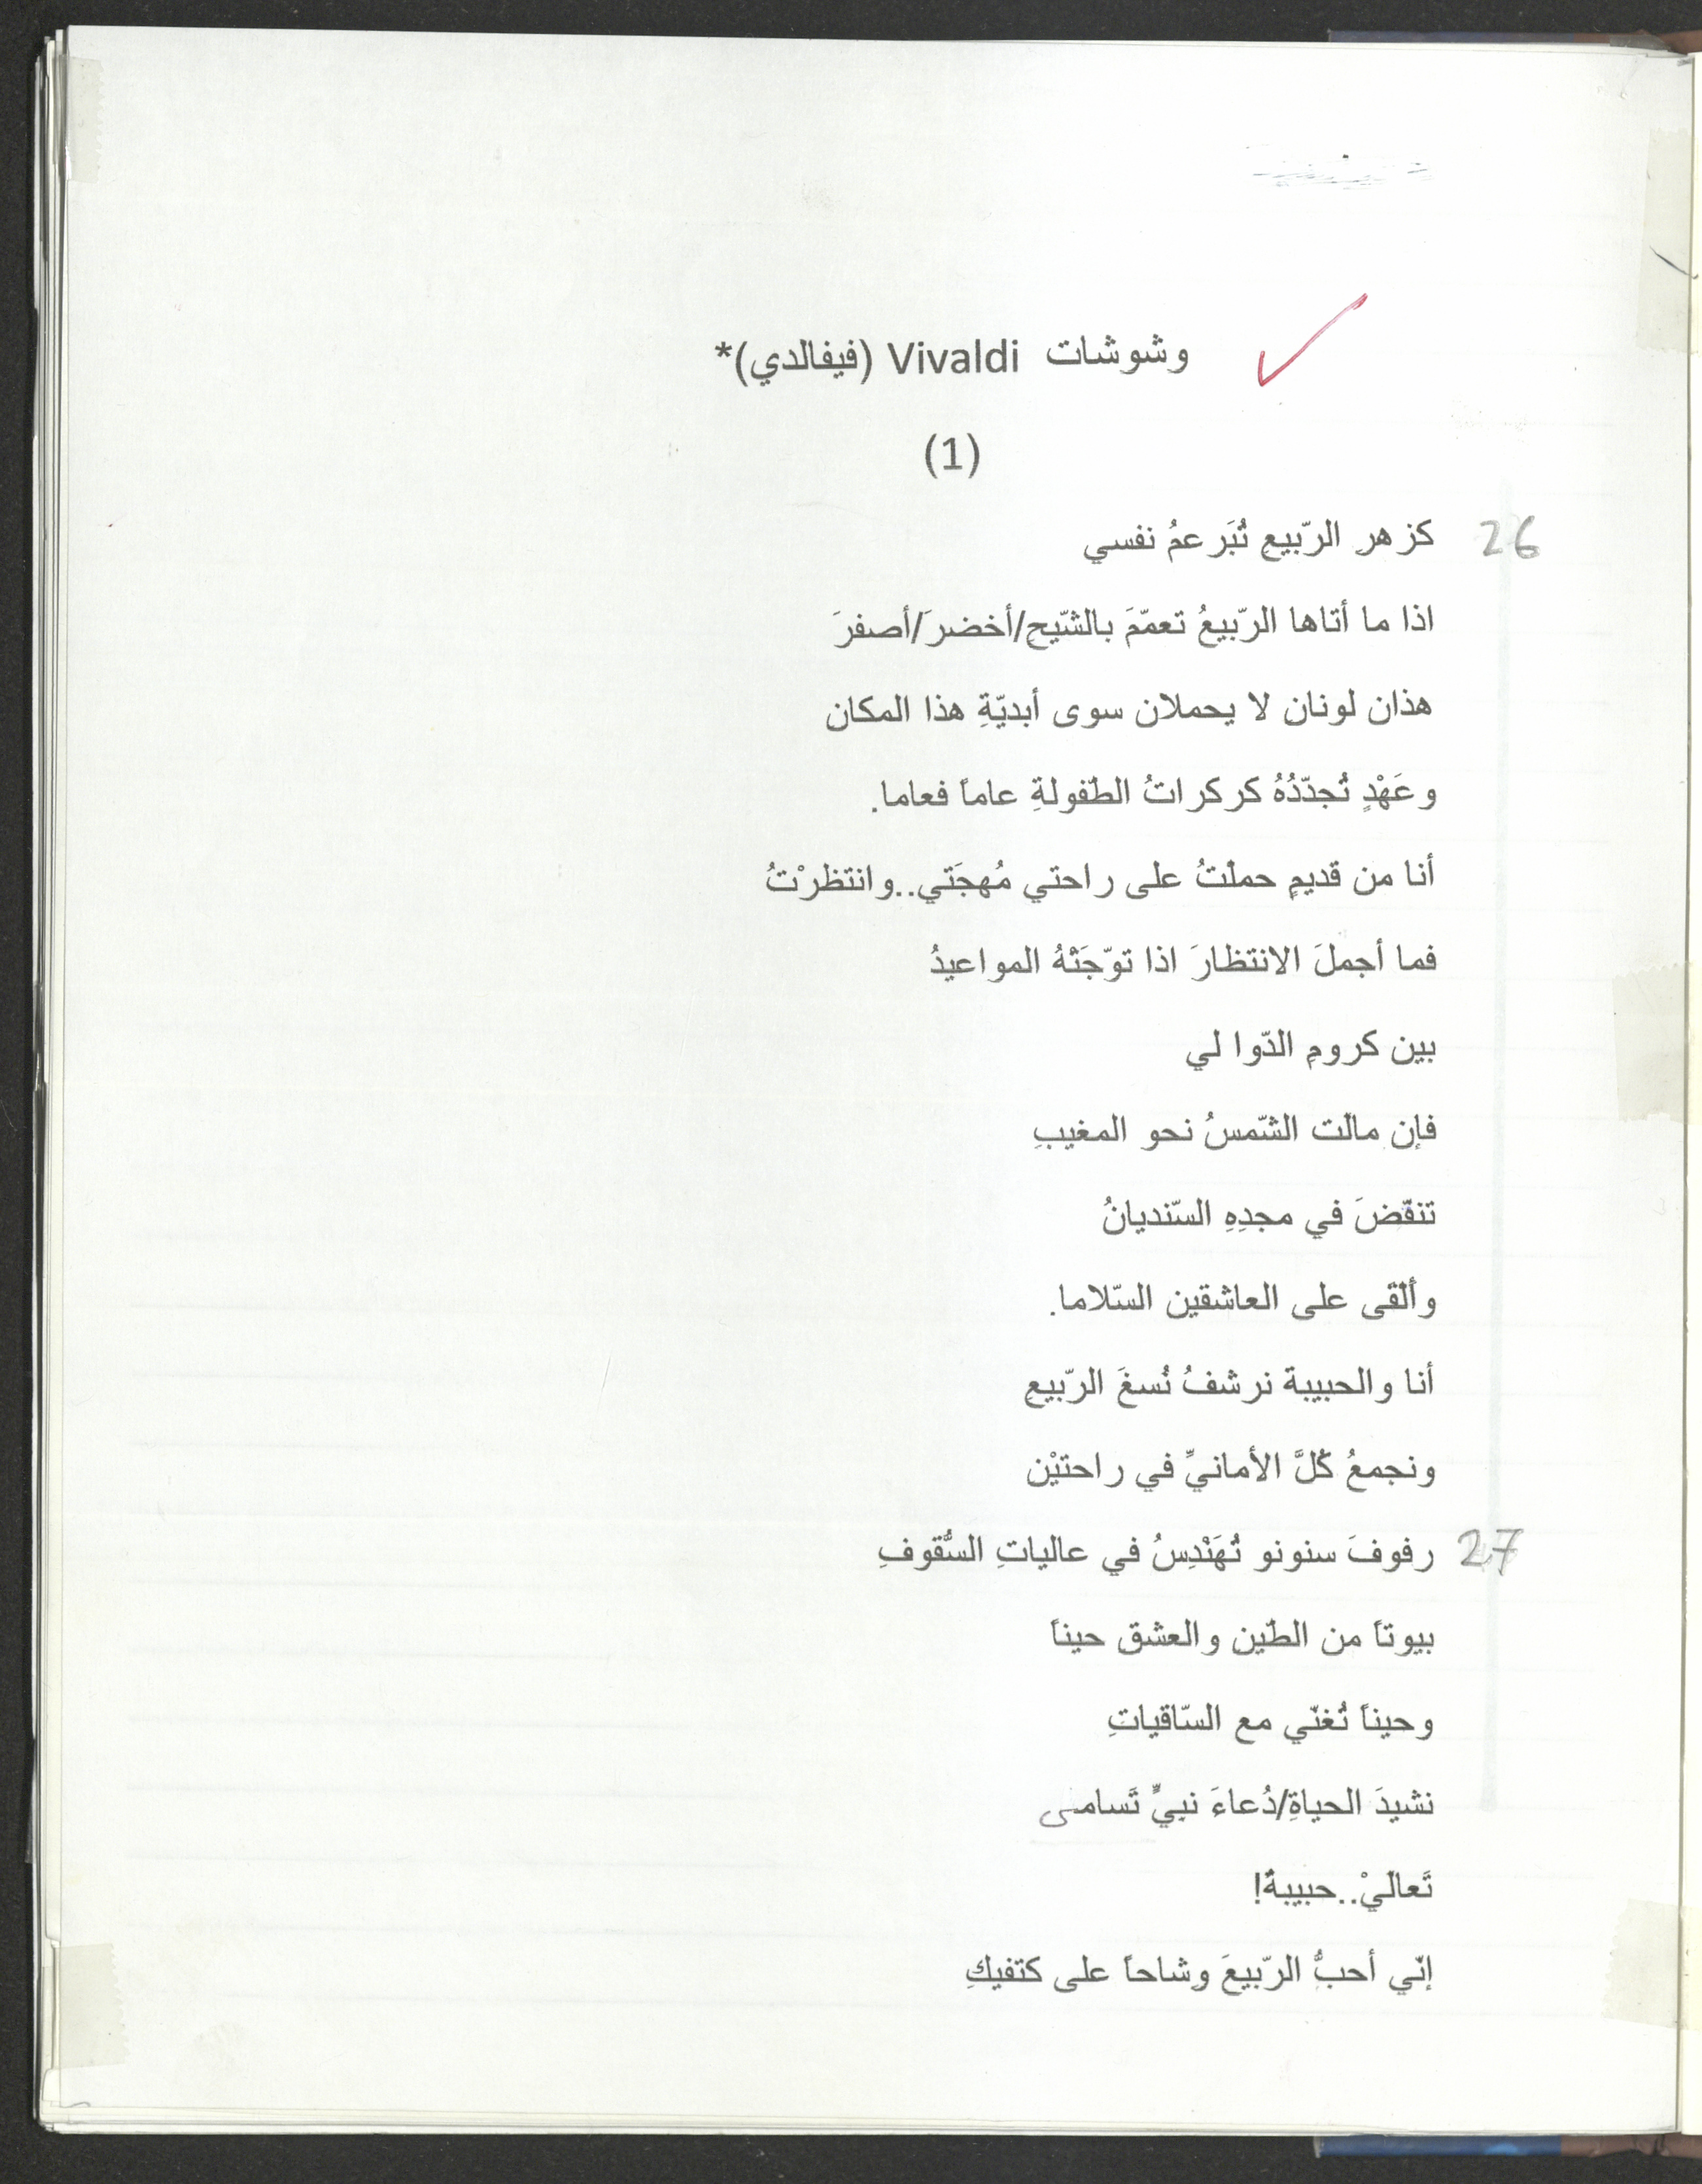 وشوشات Vivaldi (فيفالدي)*
(1)
26 كزهرِ الرّبيع تُبَرعمُ نفسي
اذا ما أتاها الرّبيعُ تعمّمَ بالشّيحِ/أخضرَ/أصفرَ
هذان لونان لا يحملان سوى أبديّةِ هذا المكان
وعَهْدٍ تُجدّدُهُ كركراتُ الطّفولةِ عاماً فعاما.
أنا من قديمٍ حملْتُ على راحتي مُهجَتي..وانتظرْتُ
فما أجملَ الانتظارَ اذا توّجَتْهُ المواعيدُ
بين كرومِ الدّوا لي
فإن مالَت الشّمسُ نحو المغيبِ
تنفّضَ في مجدِهِ السّنديانُ
وألْقَى على العاشقين السّلاما.
أنا والحبيبة نرشفُ نُسغَ الرّبيعِ
ونجمعُ كُلَّ الأمانيِّ في راحتيْن
27 رفوفَ سنونو تُهَنْدِسُ في عالياتِ السُّقوفِ
بيوتاً من الطّين والعشق حيناً
وحيناً تُغنّي مع السّاقياتِ
نشيدَ الحياةِ/دُعاءَ نبيٍّ تَسامى
تَعالَيْ..حبيبةُ!
إنّي أحبُّ الرّبيعَ وشاحاً على كتفيكِ